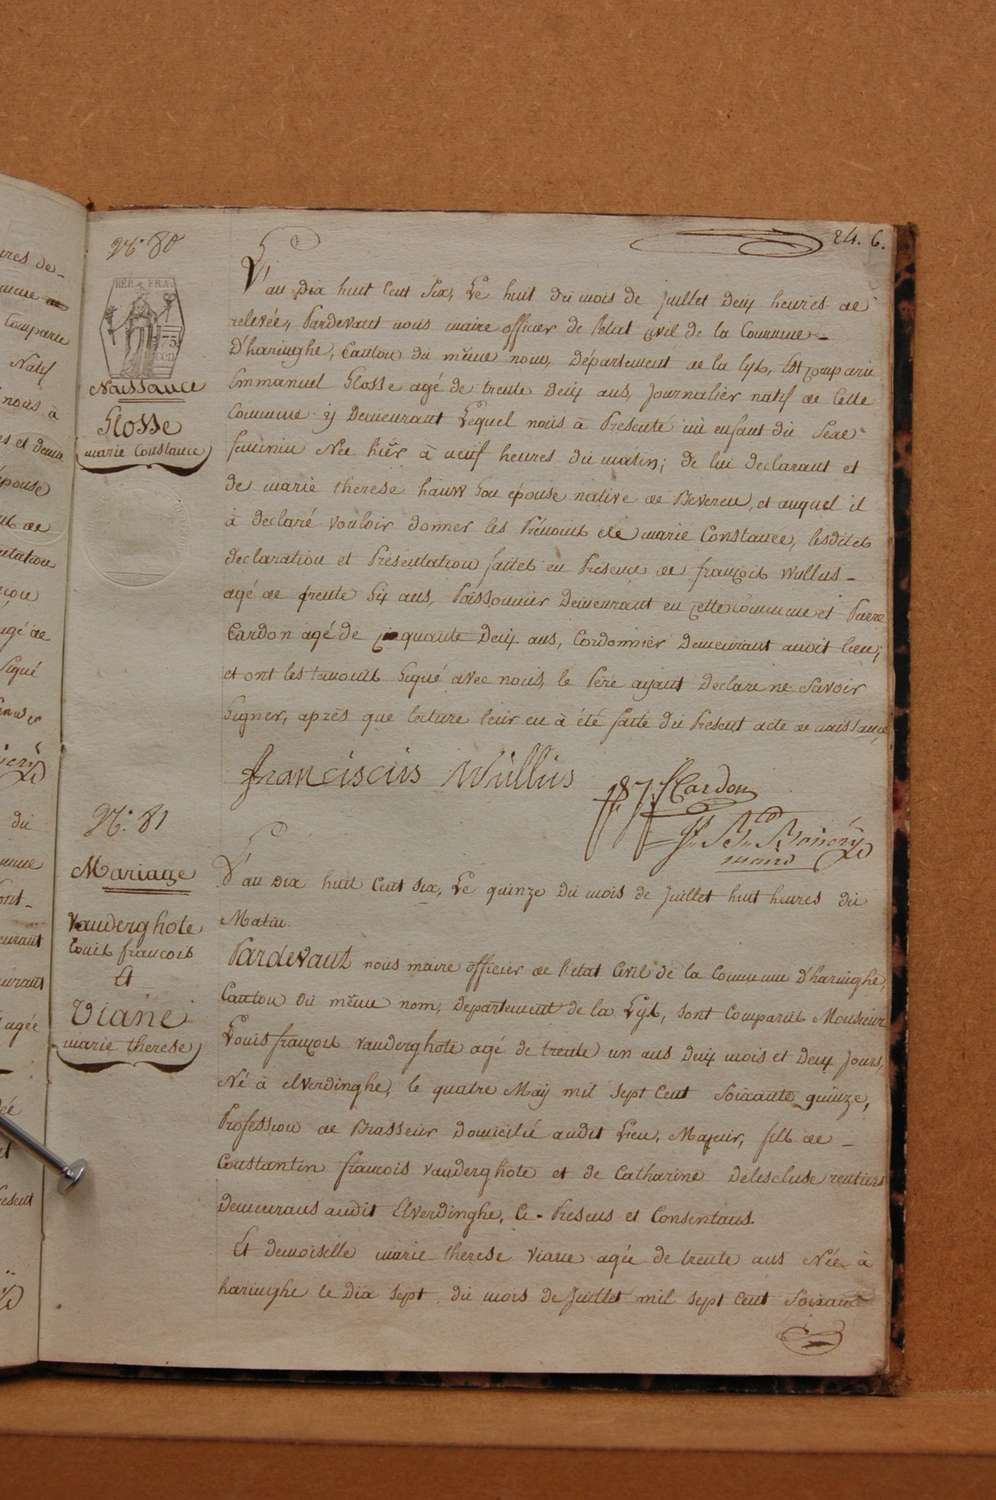 24. 6.
N.° 80
REP. FRA.
75
CEN
Naissance
Glosse
marie Constance
L'an Dix huit Cent Six, Le huit du mois de juillet Deux heures de
relevée, Pardevant nous maire officier de l'etat Civil de la Commune
D'haringhe, Canton du même nom, Département de la Lys, Est comparu
Emmanuel Glosse agé de trente Deux ans, Journalier natif de Cette
Commune y Demeurant Lequel nous à Presenté un enfant du Sexe
feminin Née hier à neuf heures du matin; de lui declarant et
de marie therese hauw Son épouse native de Beveren, et auquel il
à declaré vouloir donner les Prénoms de marie Constance, lesdites
declaration et Presentation faites en Presence de françois Wullus
agé de trente Six ans, Poissonnier Demeurant en cette commune et Pierre
Cardon agé de cinquante Deux ans, Cordonnier Demeurant audit lieu;
et ont les temoins Signé avec nous, le Pere ayant Declaré ne Savoir
Signer, après que lecture leur en à été faite du Present acte de naissance
franciscus Wullus
Cardon
maire
N.° 81
Mariage
Vanderghote
Louis francois
Et
Viane
marie therese
L'an Dix huit Cent Six, Le quinze Du mois de Juillet huit heures du
Matin.
Pardevant nous maire officier de l'etat Civil de la Commune D'haringhe,
Canton Du même nom, departement de la Lys, sont Comparus Monsieur
Louis françois Vanderghote agé de trente un ans Deux mois et Deux Jours,
Né à Elverdinghe, le quatre Maÿ mil Sept Cent Soixante quinze,
Profession de Brasseur Domicilié audit Lieu, Majeur, fils de
Constantin francois Vanderghote et de Catharine Delescluse rentiers
Demeurans audit Elverdinghe, Ci-Presens et Consentans.
Et demoiselle marie therese Viane agée de trente ans Née à
haringhe le Dix Sept du mois de Juillet mil Sept Cent Soixante